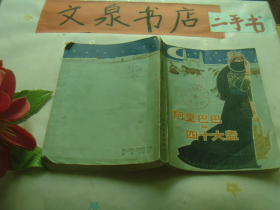 文泉书店
二手书
阿里巴巴
四十大盗